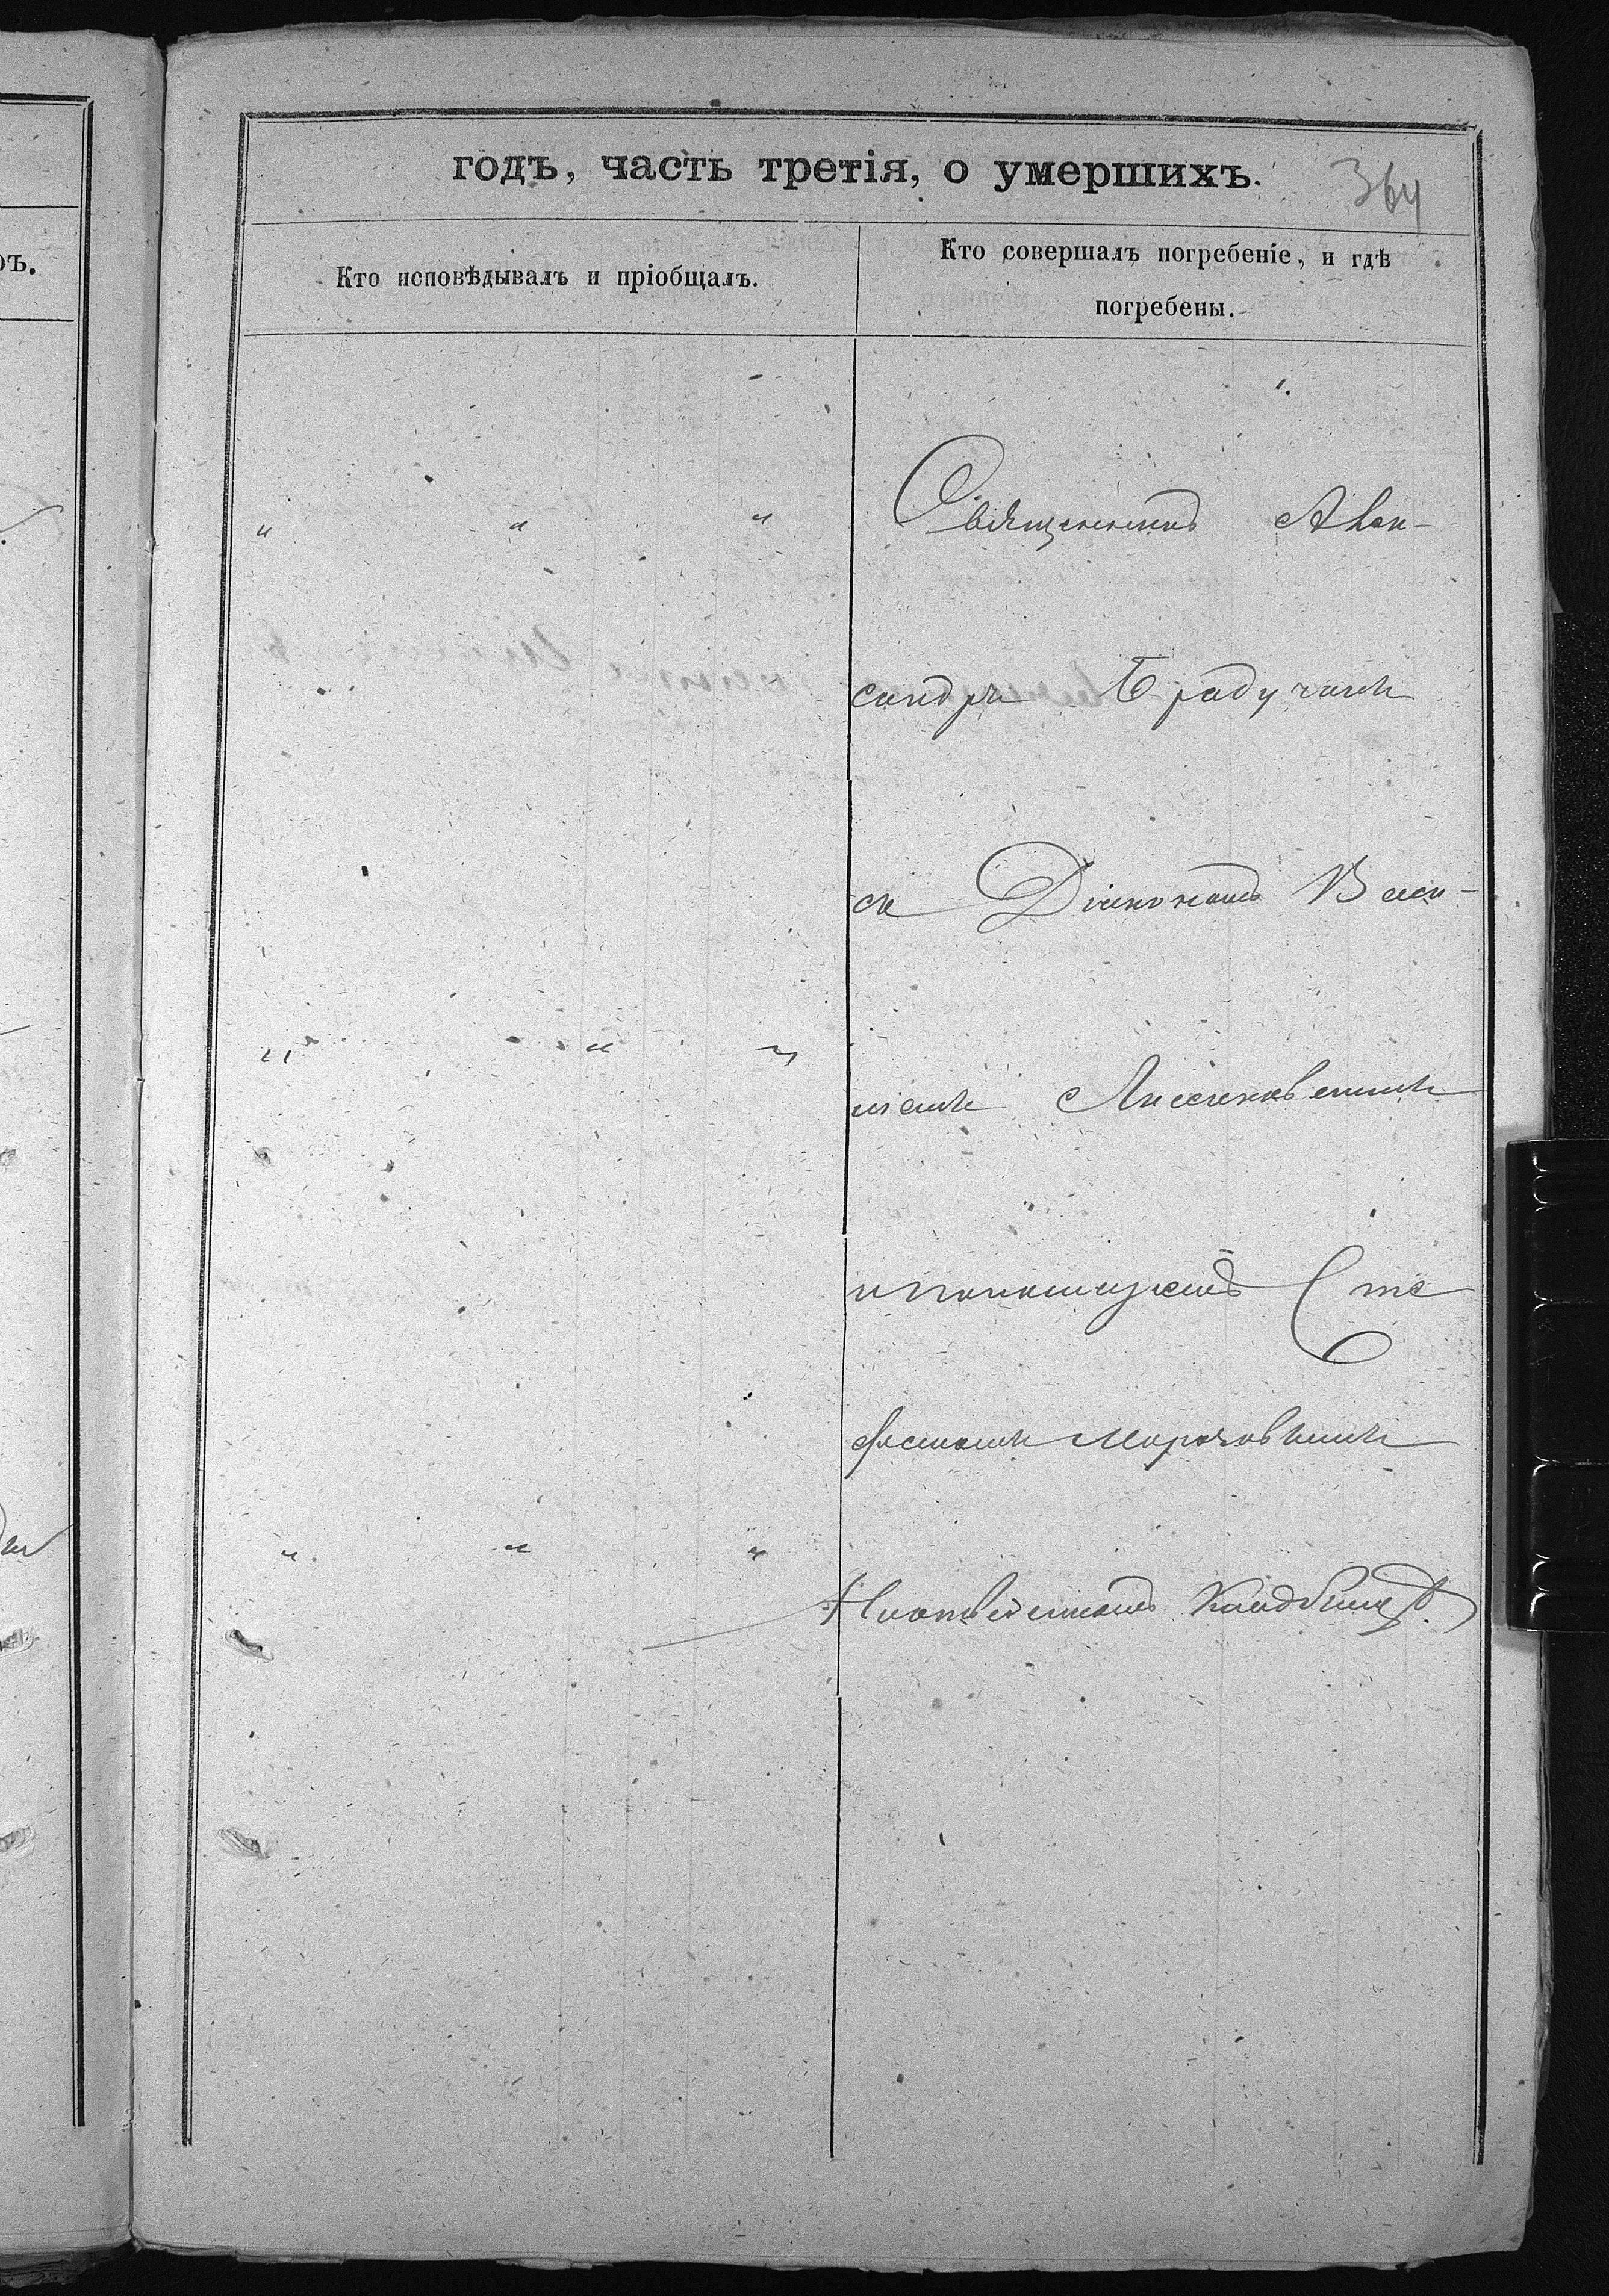 годъ, часть третія, о умершихъ.
364
Кто исповѣдывалъ и пріобщалъ.
Кто совершалъ погребеніе, и гдѣ
погребены.
ръ.
" " "
Священникъ Алек-
сандръ Брадучанъ
съ Діакономъ Васи-
" " "
ліемъ
и псаломщикомъ Сте
фаномъ
" " "
На приходскомъ кладбищѣ.